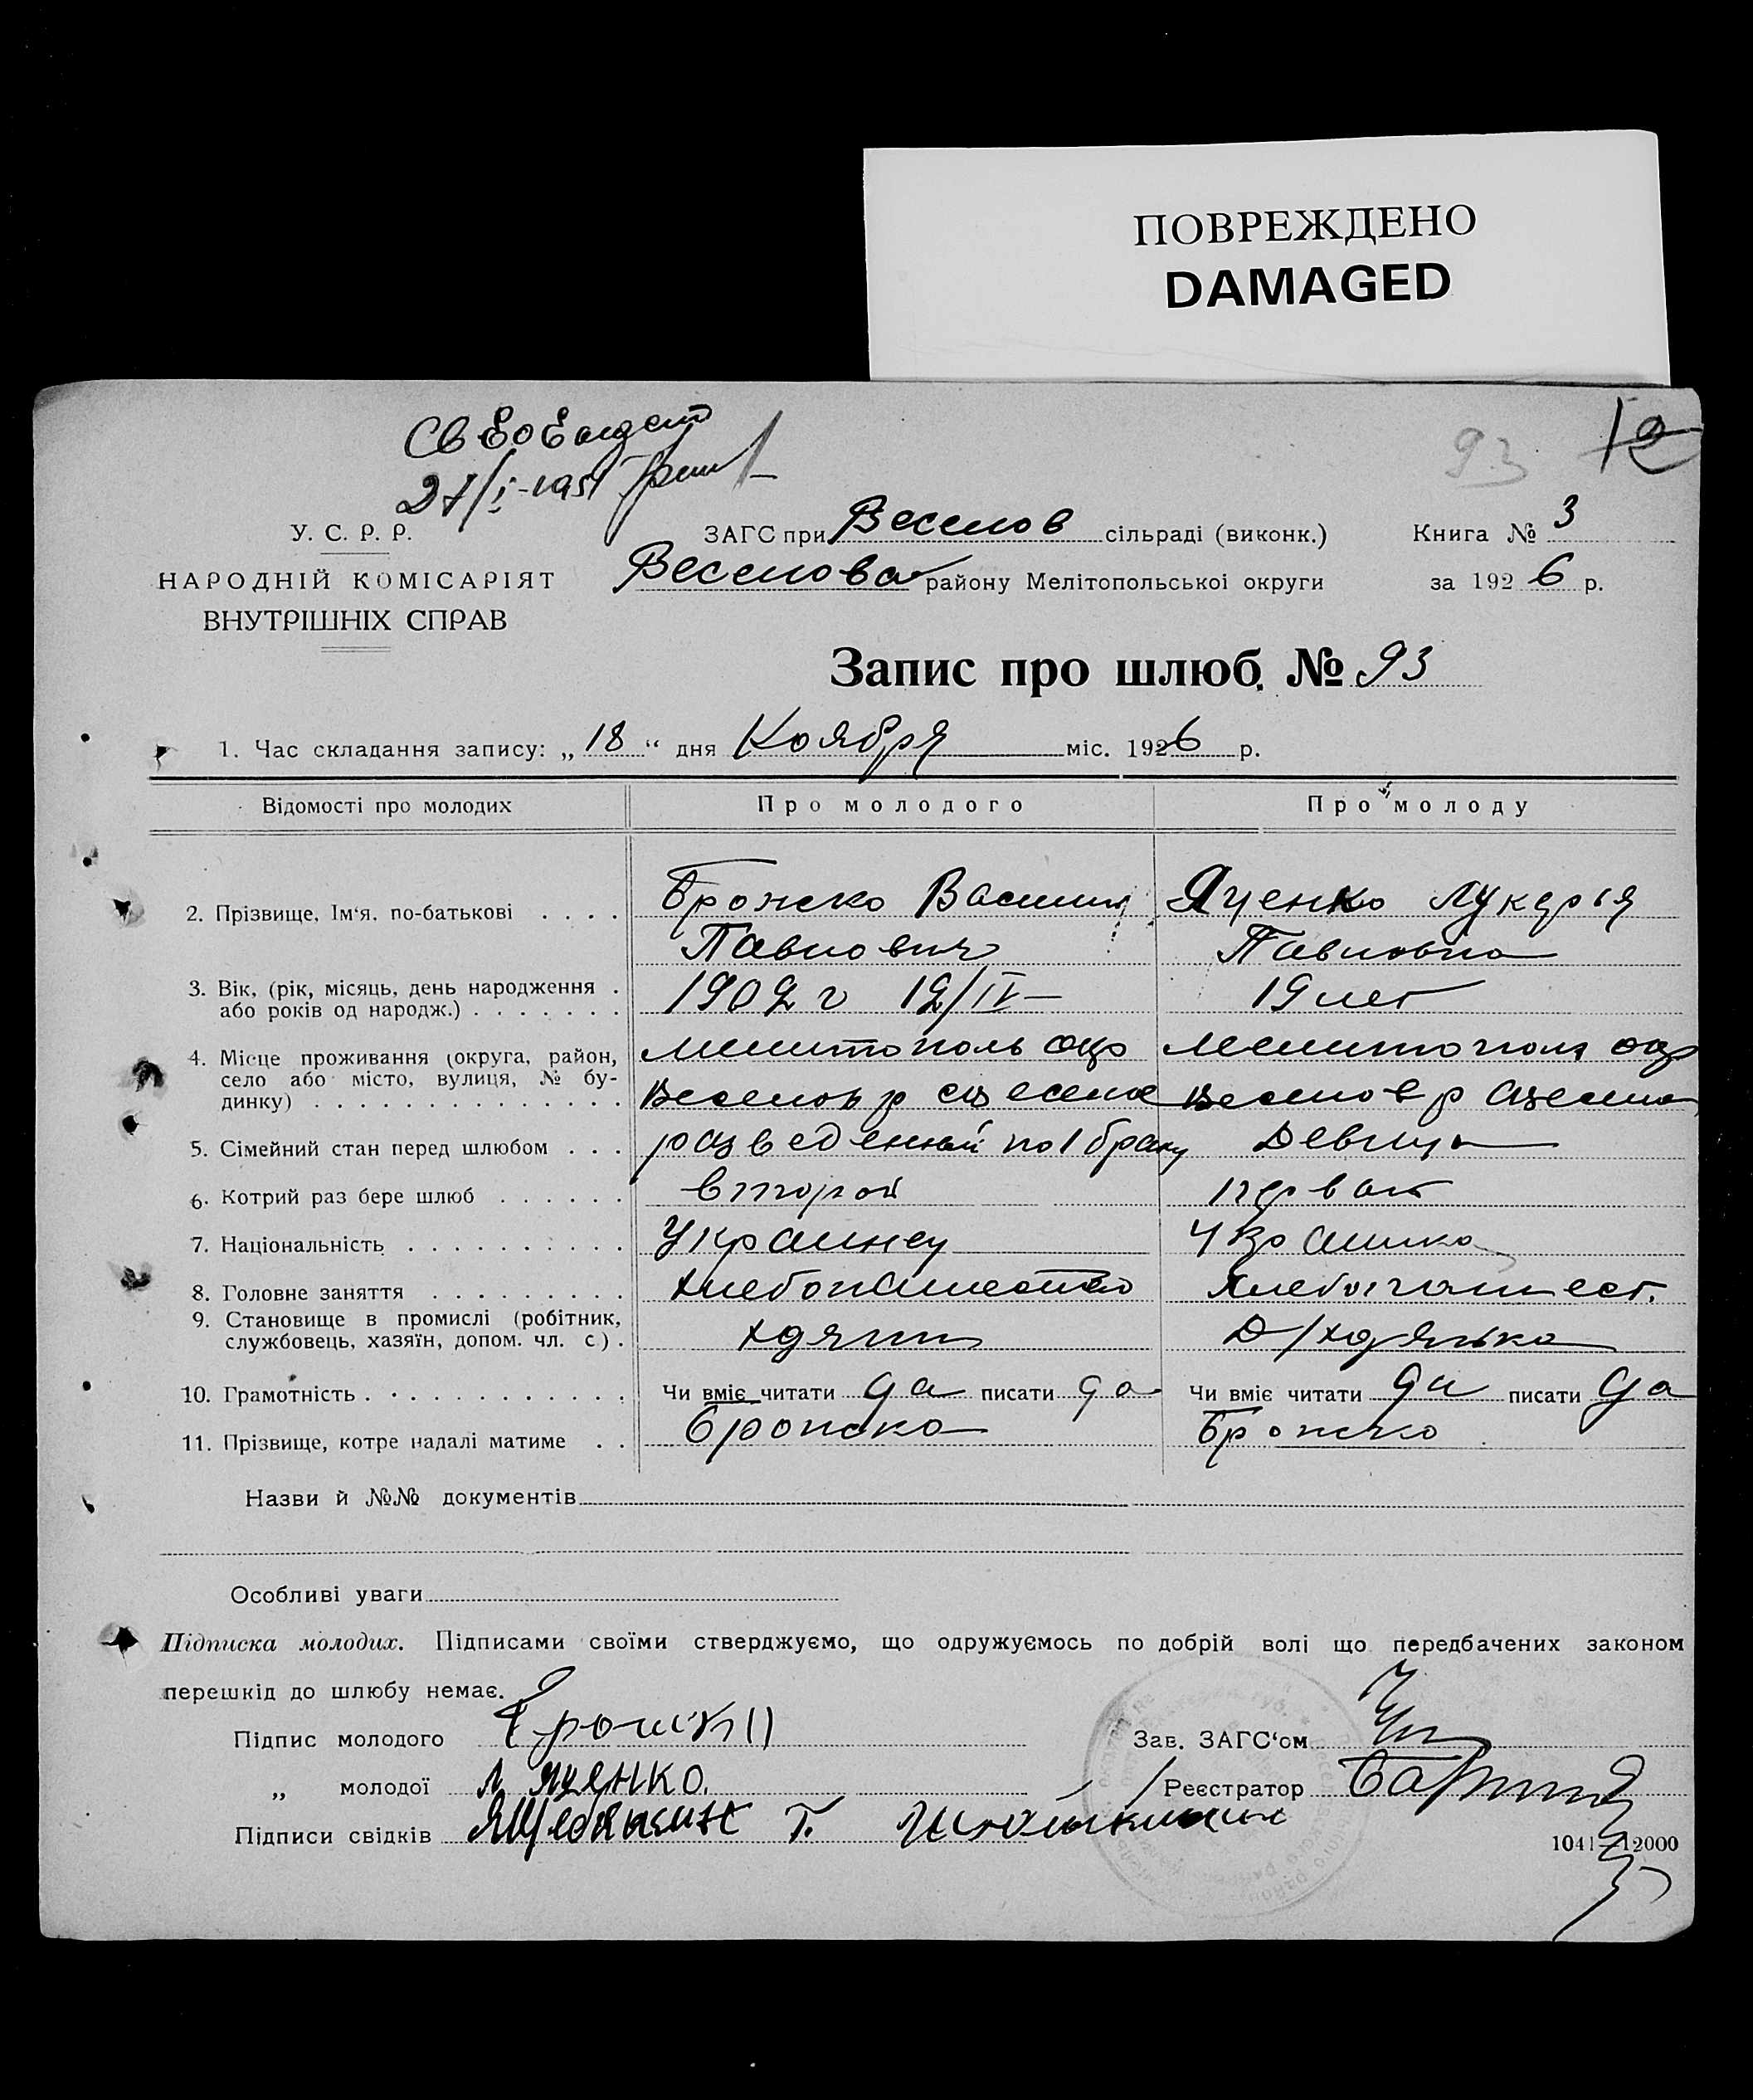 ПОВРЕЖДЕНО
DAMAGED
93
12
У. С. Р. Р.
НАРОДНІЙ КОМІСАРІЯТ
ВНУТРІШНІХ СПРАВ
ЗАГС при Веселов сільраді (виконк.)
Веселова району Мелітопольської округи
Книга № 3
за 1926 р.
Запис про шлюб № 93
1. Час складання запису: „18“ дня Ноября міс. 1926 р.
Відомості про молодих Про молодого Про молоду
2. Прізвище, Ім‘я, по-батькові . . . . Брожко Василий Яценко Лукерія
Павлович Павловна
3. Вік, (рік, місяць, день народження . або років од народж.) . . . . . . . 1902 г 12/IV 19 лет
4. Місце проживання (округа, район, Мелитополь окр Мелитополь окр
село або місто, вулиця, № бу-
динку) . . . . . . . . . . . . . . Веселов р Веселов р
5. Сімейний стан перед шлюбом . . . разведенный по 1 браку Девица
6. Котрий раз бере шлюб . . . . . . второй первый
7. Національність . . . . . . . . . . Украинец Украинка
8. Головне заняття . . . . . . . . . хлебопашество хлебопашест.
9. Становище в промислі (робітник,
службовець, хазяїн, допом. чл. с.) .
10. Грамотність . . . . . . . . . . . . Чи вміє читати да писати да Чи вміє читати да писати да
11. Прізвище, котре надалі матиме . . Брожко Брожко
Назви й №№ документів
Особливі уваги
Підписка молодих. Підписами своїми стверджуємо, що одружуємось по добрій волі що передбачених законом
перешкід до шлюбу немає.
Підпис молодого
„ молодої Л Яценко.
Підписи свідків
Зав. ЗАГС‘ом
Реєстратор
1041—12000